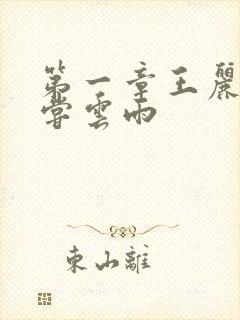 第一章王麗
嘗雲雨
東山離